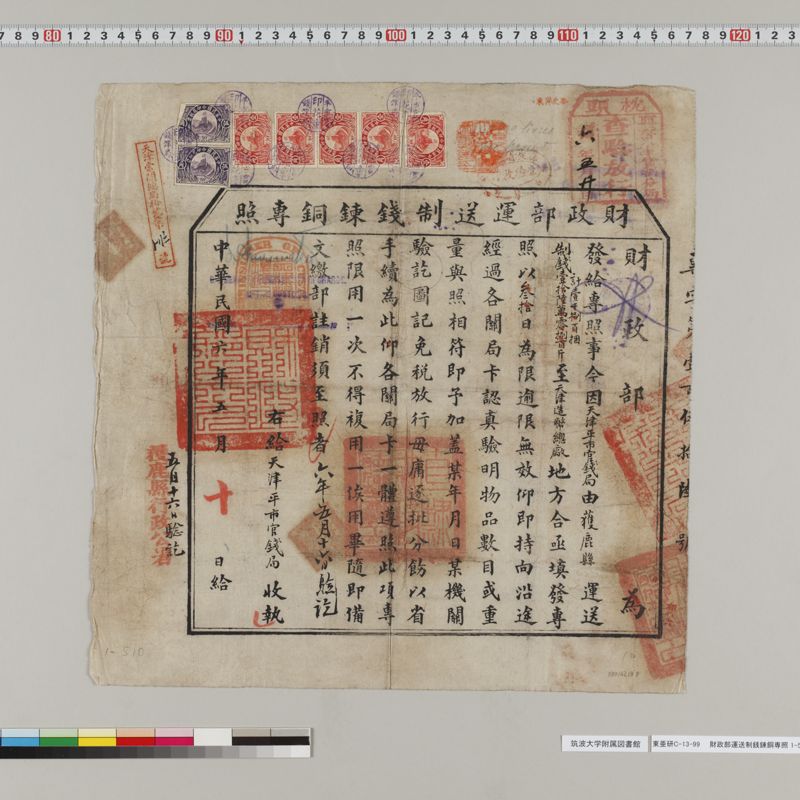 財政部運送制錢鍊銅專照
財政部 為
發給專照事今因天津平市官錢局由獲鹿縣 運送
制錢壹拾陸萬零捌百斤 計壹千捌百捆 至天津造幣總廠地方合亟填發專
照以叁拾日為限逾限無效仰即持向沿途
經過各關局卡認真驗明物品數目或重
量與照相符即予加蓋某年月日某機關
驗訖圖記免稅放行毋庸逐批分飭以省
手續為此仰各關局卡一體遵照此項專
照限用一次不得複用一俟用畢隨即備
文繳部註銷須至照者 六年五月十六日驗訖
右給天津平市官錢局 收執
中華民國六年五月 十 日給
五月十六日驗訖
獲鹿縣行政公署
稅
查驗放行
六五廿
號
1-510
筑波大学附属図書館
東亜研C-13-99 財政部運送制銭錬銅専照 1-5
7 8 9 80 1 2 3 4 5 6 7 8 9 90 1 2 3 4 5 6 7 8 9 100 1 2 3 4 5 6 7 8 9 110 1 2 3 4 5 6 7 8 9 120 1 2 3